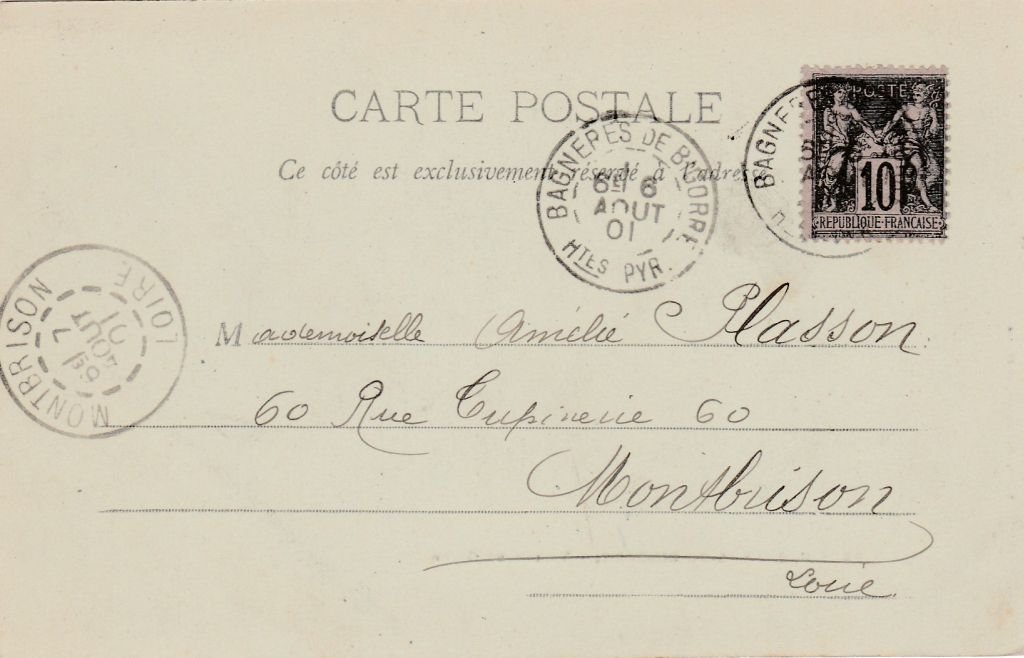 CARTE POSTALE
Ce côté est exclusivement réservé à l'adresse
BAGNÈRES DE BIGORRE
6E 6
AOUT
01
HTES PYR.
BAGNER
POSTE
10
REPUBLIQUE FRANÇAISE
MONTBRISON
LOIRE
6E 7
AOUT
01
Mademoiselle Amélie Plasson
60 Rue Tupinerie 60
Montbrison
Loire